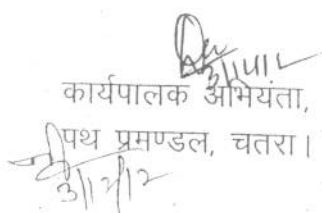 कार्यपालक अभियंता,
पथ प्रमण्डल, चतरा।
3/12/12